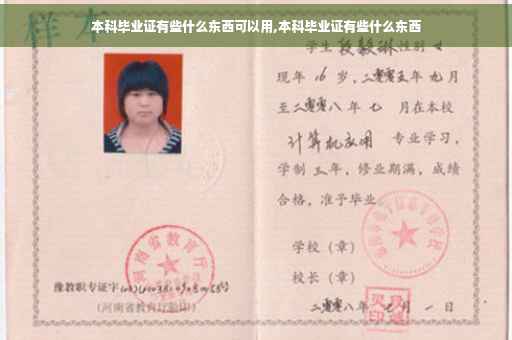 本科毕业证有些什么东西可以用,本科毕业证有些什么东西
样本
学生 段毅琳 性别 女
现年 16 岁，二零零五年 九月
至二零零八年 七 月在本校
计算机应用 专业学习，
学制 三年，修业期满，成绩
合格，准予毕业
学校（章）
校长（章）
二零零八年 七月 一日
河南省教育厅
豫教职专证字
（河南省教育厅验印）